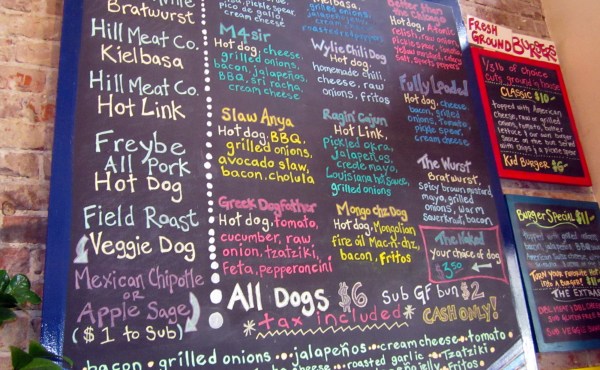 Bratwurst
Hill Meat Co.
Kielbasa
Hill Meat Co.
Hot Link
Freybe
All Pork
Hot Dog
Field Roast
Veggie Dog
Mexican Chipotle
or
Apple Sage
($1 to Sub)
pickle spear
pico de gallo,
cream cheese
M4sir
Hot dog, cheese,
grilled onions,
bacon, jalapeños,
BBQ, sriracha,
cream cheese
Slaw Anya
Hot dog, BBQ,
grilled onions,
avocado slaw,
bacon, cholula
Greek Dogfather
Hot dog, tomato,
cucumber, raw
onion, tzatziki,
feta, pepperoncini
Kielbasa,
grilled onions,
Wylie Chili Dog
Hot dog,
homemade chili,
cheese, raw
onions, fritos
Ragin' Cajun
Hot Link,
Pickled okra,
jalapeños,
creole mayo,
Louisiana hot sauce,
grilled onions
Mongo chz Dog
Hot dog, Mongolian
fire oil Mac-n-chz,
bacon, Fritos
Better than
the Chicago
Hot dog, Atomic
relish, raw onion
pickle spear, tomato
yellow mustard, celery
salt, sports peppers
Fully Loaded
Hot dog, cheese,
bacon, grilled
onions, tomato,
pickle spear,
cream cheese
The Wurst
Bratwurst,
spicy brown mustard,
mayo, grilled
onions, warm
sauerkraut, bacon
The Naked
your choice of dog
3.50
All Dogs $6 Sub GF bun $2
*tax included* CASH ONLY!
bacon • grilled onions • jalapeños • cream cheese • tomato
cheese • roasted garlic • Tzatziki
jelly • Fritos
Fresh
Ground Burgers
1/3 lb of choice
cuts, ground in house
Classic $10
topped with American
cheese, raw or grilled
onions, tomato, butter
lettuce & our own burger
sauce on the bun served
with chips & a pickle spear
Kid Burger $6
Burger Special $11
Turn your favorite Hot Dog
into a Burger! $11
The Extras